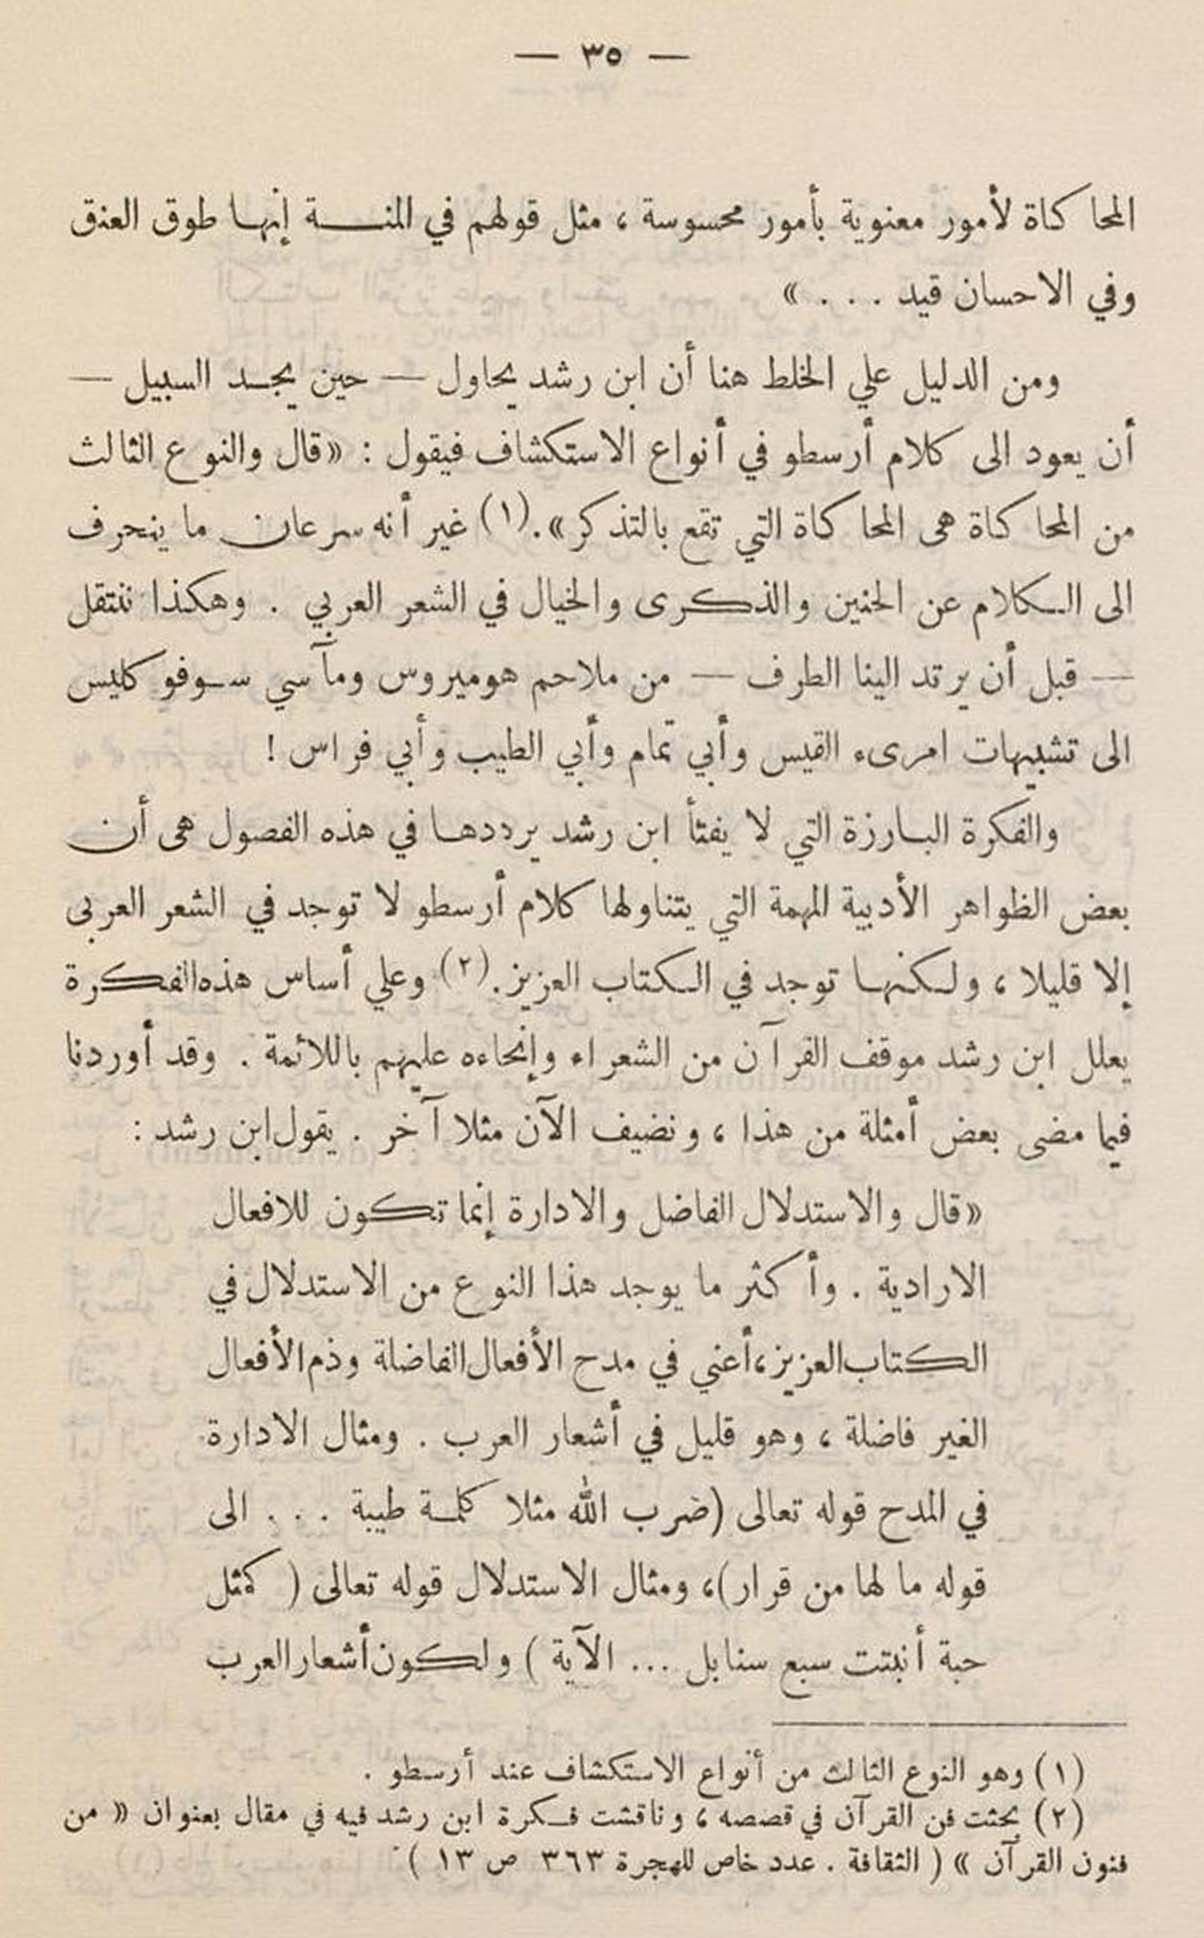 — ٣٥ —
المحاكاة لأمور معنوية بأمور محسوسة ، مثل قولهم في المنــة إنها طوق العنق
وفي الاحسان قيد . . . »
ومن الدليل علي الخلط هنا أن ابن رشد يحاول — حين يجد السبيل —
أن يعود الى كلام أرسطو في أنواع الاستكشاف فيقول : «قال والنوع الثالث
من المحاكاة هى المحاكاة التي تقع بالتذكر» .(١) غير أنه سرعان ما ينحرف
الى الكلام عن الحنين والذكرى والخيال في الشعر العربي . وهكذا ننتقل
— قبل أن يرتد الينا الطرف — من ملاحم هوميروس ومآسي سوفوكليس
الى تشبيهات امرىء القيس وأبي تمام وأبي الطيب وأبي فراس !
والفكرة البارزة التي لا يفتأ ابن رشد يرددها في هذه الفصول هى أن
بعض الظواهر الأدبية المهمة التي يتناولها كلام أرسطو لا توجد في الشعر العربى
إلا قليلا ، ولكنها توجد في الكتاب العزيز .(٢) وعلي أساس هذه الفكرة
يعلل ابن رشد موقف القرآن من الشعراء وإنحاءه عليهم باللائمة . وقد أوردنا
فيما مضى بعض أمثلة من هذا ، ونضيف الآن مثلا آخر . يقول ابن رشد :
«قال والاستدلال الفاضل والادارة إنما تكون للافعال
الارادية . وأكثر ما يوجد هذا النوع من الاستدلال في
الكتاب العزيز، أعني في مدح الأفعال الفاضلة وذم الأفعال
الغير فاضلة ، وهو قليل في أشعار العرب . ومثال الادارة
في المدح قوله تعالى (ضرب الله مثلا كلمة طيبة . . . الى
قوله ما لها من قرار)، ومثال الاستدلال قوله تعالى ( كمثل
حبة أنبتت سبع سنابل ... الآية ) ولكون أشعار العرب
(١) وهو النوع الثالث من أنواع الاستكشاف عند أرسطو .
(٢) بحثت فن القرآن في قصصه ، وناقشت فكرة ابن رشد فيه في مقال بعنوان « من
فنون القرآن » ( الثقافة . عدد خاص للهجرة ٣٦٣ ص ١٣ )